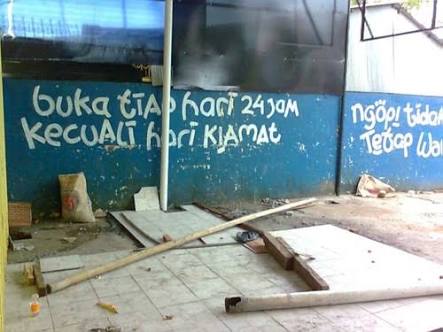 buka tiap hari 24 jam
kecuali hari kiamat
ngopi tidak
Tetap